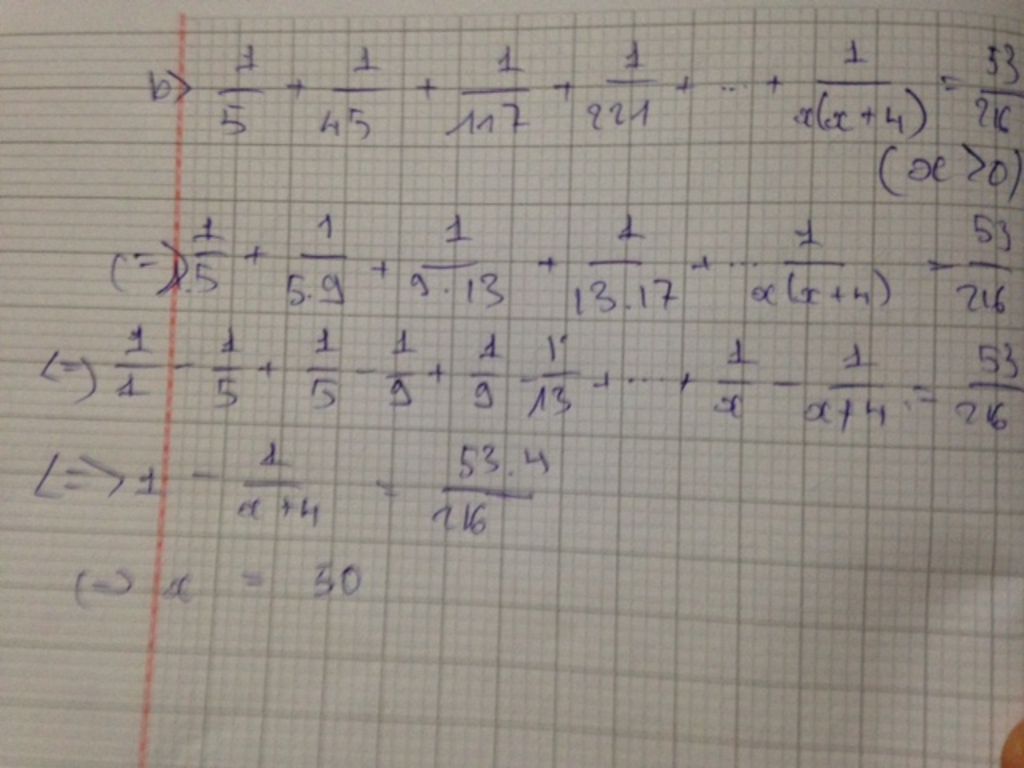 b> 1/5 + 1/45 + 1/117 + 1/221 + ... + 1/x(x+4) = 53/216
(x > 0)
(=) 1/1.5 + 1/5.9 + 1/9.13 + 1/13.17 + ... 1/x(x+4) = 53/216
(=) 1/1 - 1/5 + 1/5 - 1/9 + 1/9 - 1/13 + ... + 1/x - 1/x+4 = 53/216
<=> 1 - 1/x+4 = 53.4/216
(=) x = 50